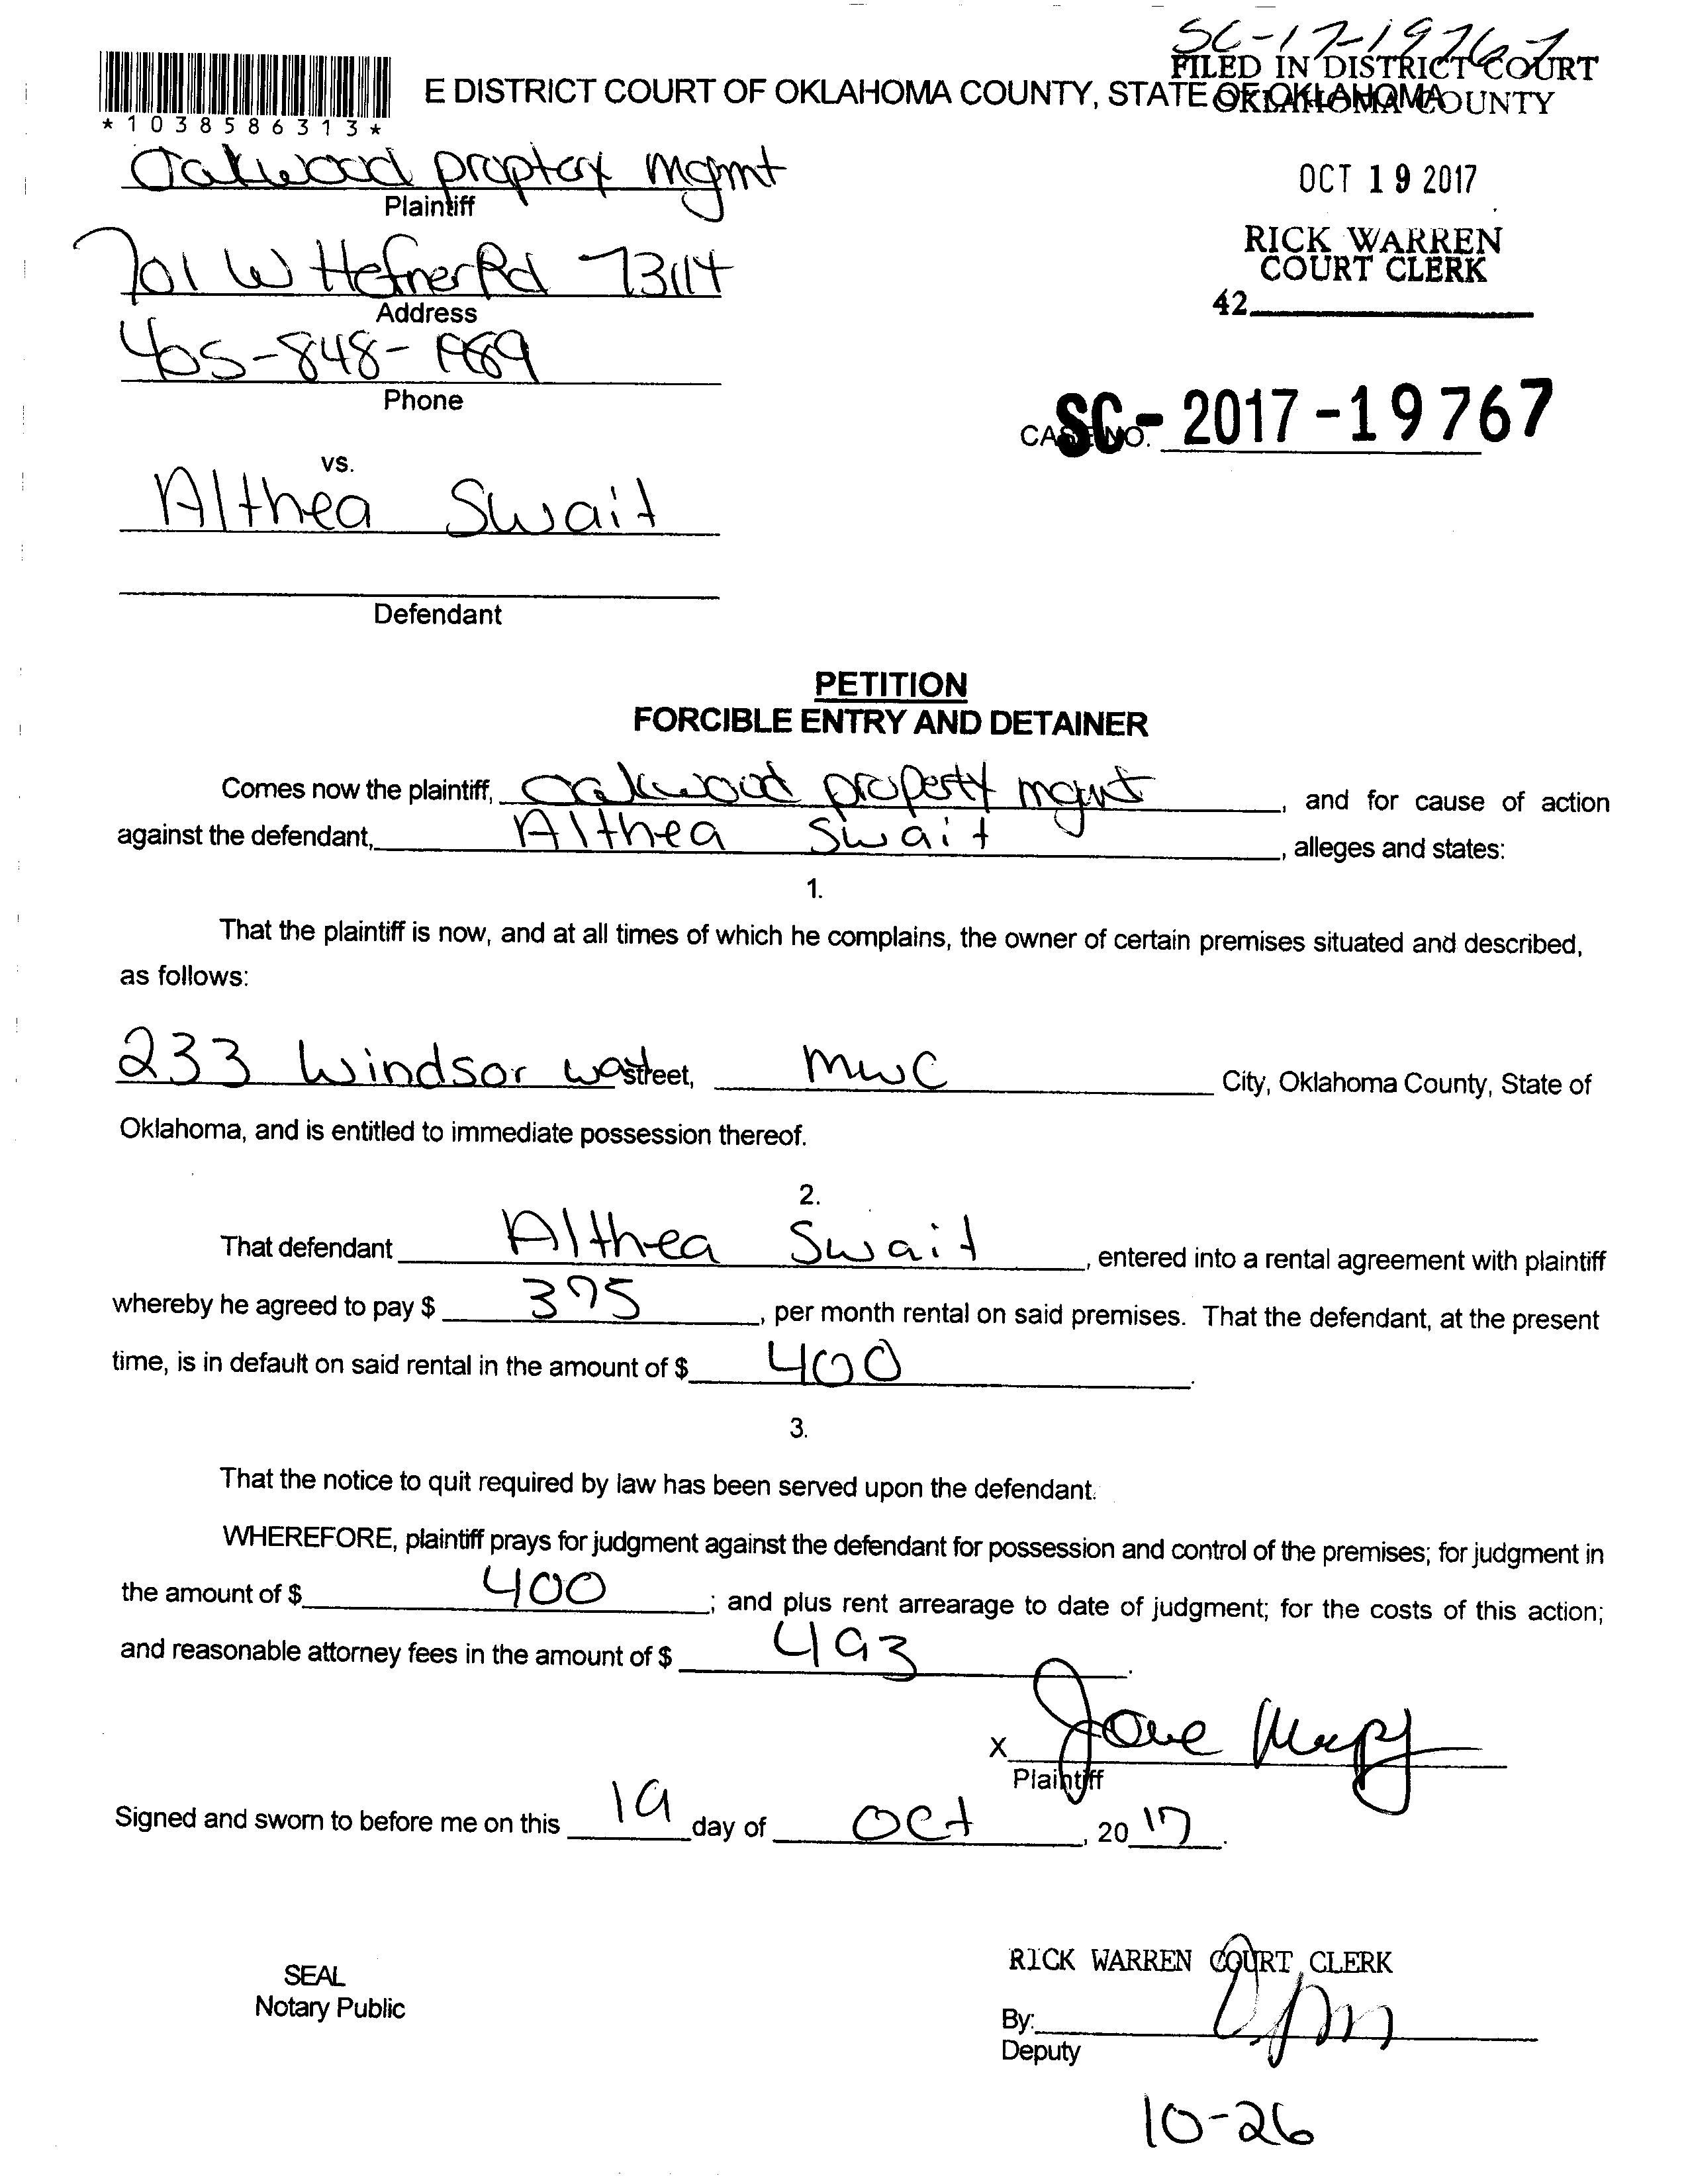 SC-17-19767
FILED IN DISTRICT COURT
OKLAHOMA COUNTY
E DISTRICT COURT OF OKLAHOMA COUNTY, STATE OF OKLAHOMA
*1038586313*
Oakwood proptery mgmt
Plaintiff
OCT 19 2017
RICK WARREN
COURT CLERK
42
701 W Hefner Rd 73114
Address
405-848-1989
Phone
CASE NO. SC-2017-19767
vs.
Althea Swait
Defendant
PETITION
FORCIBLE ENTRY AND DETAINER
Comes now the plaintiff, Oakwood property mgmt, and for cause of action
against the defendant, Althea Swait, alleges and states:
1.
That the plaintiff is now, and at all times of which he complains, the owner of certain premises situated and described,
as follows:
233 Windsor way street, MWC City, Oklahoma County, State of
Oklahoma, and is entitled to immediate possession thereof.
2.
That defendant Althea Swait, entered into a rental agreement with plaintiff
whereby he agreed to pay $ 375, per month rental on said premises. That the defendant, at the present
time, is in default on said rental in the amount of $ 400.
3.
That the notice to quit required by law has been served upon the defendant.
WHEREFORE, plaintiff prays for judgment against the defendant for possession and control of the premises; for judgment in
the amount of $ 400; and plus rent arrearage to date of judgment; for the costs of this action;
and reasonable attorney fees in the amount of $ 493.
X
Plaintiff
Signed and sworn to before me on this 19 day of Oct, 2017.
SEAL
Notary Public
RICK WARREN COURT CLERK
By:
Deputy
10-26